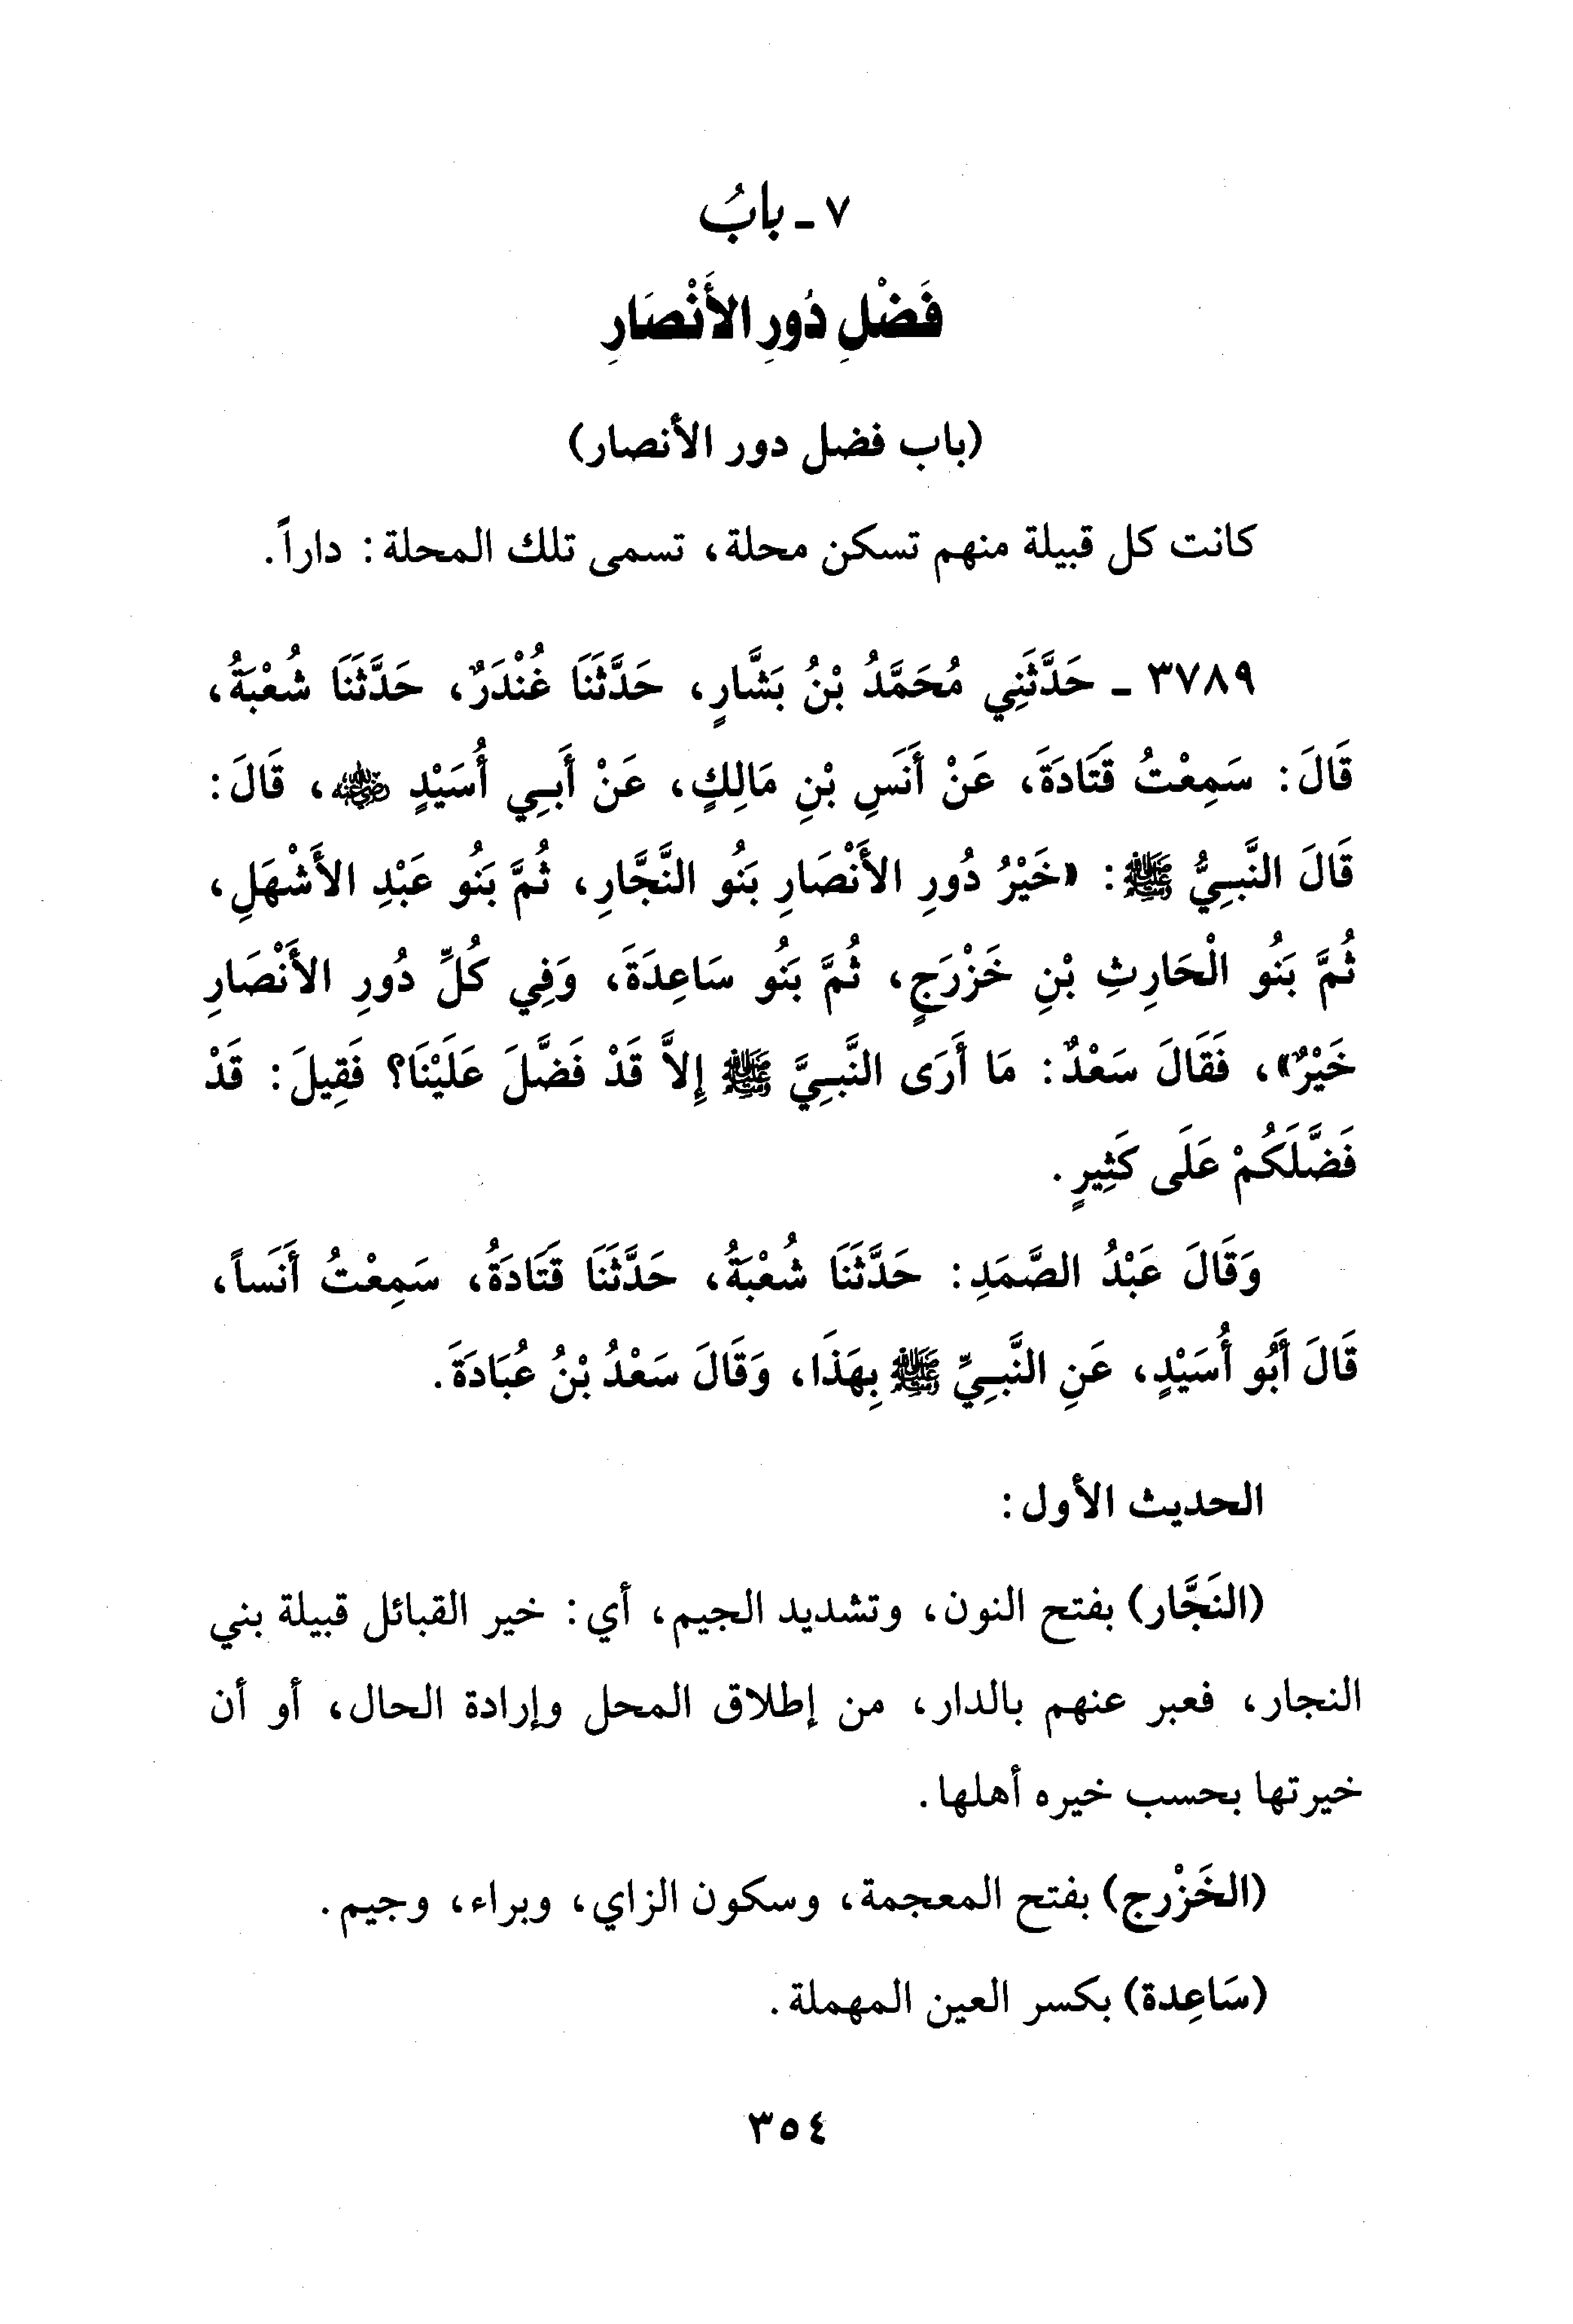 ٧ ـ بابُ
فَضْلِ دُورِ الأَنْصَارِ
(باب فضل دور الأنصار)
كانت كل قبيلة منهم تسكن محلة، تسمى تلك المحلة: داراً.
٣٧٨٩ ـ حَدَّثَنِي مُحَمَّدُ بْنُ بَشَّارٍ، حَدَّثَنَا غُنْدَرٌ، حَدَّثَنَا شُعْبَةُ،
قَالَ: سَمِعْتُ قَتَادَةَ، عَنْ أَنَسِ بْنِ مَالِكٍ، عَنْ أَبِي أُسَيْدٍ رضي الله عنه، قَالَ:
قَالَ النَّبِيُّ ﷺ: «خَيْرُ دُورِ الأَنْصَارِ بَنُو النَّجَّارِ، ثُمَّ بَنُو عَبْدِ الأَشْهَلِ،
ثُمَّ بَنُو الْحَارِثِ بْنِ خَزْرَجٍ، ثُمَّ بَنُو سَاعِدَةَ، وَفِي كُلِّ دُورِ الأَنْصَارِ
خَيْرٌ»، فَقَالَ سَعْدٌ: مَا أَرَى النَّبِيَّ ﷺ إِلاَّ قَدْ فَضَّلَ عَلَيْنَا؟ فَقِيلَ: قَدْ
فَضَّلَكُمْ عَلَى كَثِيرٍ.
وَقَالَ عَبْدُ الصَّمَدِ: حَدَّثَنَا شُعْبَةُ، حَدَّثَنَا قَتَادَةُ، سَمِعْتُ أَنَساً،
قَالَ أَبُو أُسَيْدٍ، عَنِ النَّبِيِّ ﷺ بِهَذَا، وَقَالَ سَعْدُ بْنُ عُبَادَةَ.
الحديث الأول:
(النَجَّار) بفتح النون، وتشديد الجيم، أي: خير القبائل قبيلة بني
النجار، فعبر عنهم بالدار، من إطلاق المحل وإرادة الحال، أو أن
خيرتها بحسب خيره أهلها.
(الخَزْرج) بفتح المعجمة، وسكون الزاي، وبراء، وجيم.
(سَاعِدة) بكسر العين المهملة.
٣٥٤